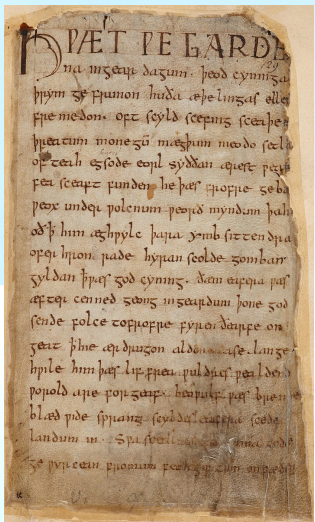 HǷÆT ǷE GARDE
na ingear dagum. þeod cyninga
þrym ge frunon huða æþelingas elle
fremedon. oft scyld scefing sceaþe
þreatum monegū mægþum meodo setla
of teah egsode eorl syððan ærest ƿear
fea sceaft funden he þæs frofre geba
ƿeox under ƿolcnum ƿeorð myndum þah
oð þ him æghƿylc þara ymb sittendra
ofer hron rade hyran scolde gomban
gyldan þ ƿæs god cyning. ðæm eafera ƿæs
æfter cenned geong ingeardum þone god
sende folce tofrofre fyren ðearfe on
geat þ hie ær drugon aldor ase. lange
hƿile him þæs lif frea ƿuldres ƿealdend
ƿorold are for geaf. beoƿulf ƿæs breme
blæd ƿide sprang scyldes eafera scede
landum in. Sƿa sceal uma gode
ge ƿyrcean fromum feoh giftum on fæder